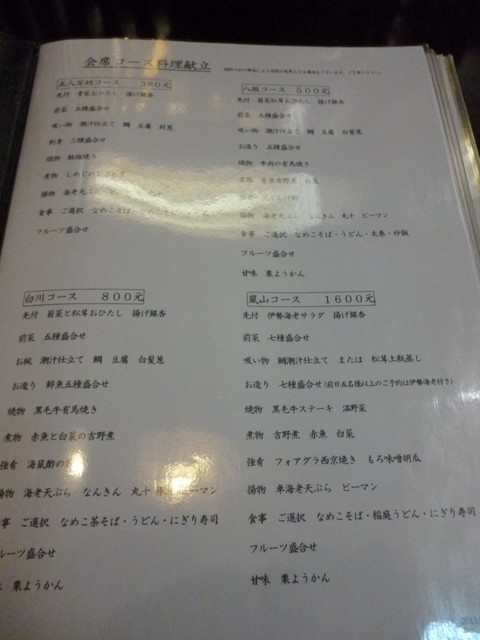 会席コース料理献立
五人百姓コース ３８０元
先付 青菜おひたし 揚げ銀杏
前菜 五種盛合せ
吸い物 潮汁仕立て 鯛 豆腐
刺身 三種盛合せ
焼物 鮭塩焼き
煮物
揚物 海老天ぷら
食事 ご選択 なめこそば
フルーツ盛合せ
八坂コース ５００元
先付 菊菜松茸おひたし 揚げ銀杏
前菜 五種盛合せ
吸い物 潮汁仕立て 鯛 豆腐 白髪葱
お造り 五種盛合せ
焼物 牛肉の有馬焼き
揚物 海老天ぷら なんきん 丸十 ピーマン
食事 ご選択 なめこそば・うどん・太巻・炒飯
フルーツ盛合せ
甘味 栗ようかん
白川コース ８００元
先付 菊菜と松茸おひたし 揚げ銀杏
前菜 七種盛合せ
お椀 潮汁仕立て 鯛 豆腐 白髪葱
お造り 鮮魚五種盛合せ
焼物 黒毛牛有馬焼き
煮物 赤魚と白菜の吉野煮
強肴 海鼠酢の
揚物 海老天ぷら なんきん 丸十 ピーマン
事 ご選択 なめこ茶そば・うどん・にぎり寿司
ルーツ盛合せ
栗ようかん
嵐山コース １６００元
先付 伊勢海老サラダ 揚げ銀杏
前菜 七種盛合せ
吸い物 鯛潮汁仕立て または 松茸土瓶蒸し
お造り 七種盛合せ(前日五名様以上のご予約は伊勢海老付き)
焼物 黒毛牛ステーキ 温野菜
煮物 吉野煮 赤魚 白菜
強肴 フォアグラ西京焼き もろ味噌胡瓜
揚物 車海老天ぷら ピーマン
食事 ご選択 なめこそば・稲庭うどん・にぎり寿司
フルーツ盛合せ
甘味 栗ようかん